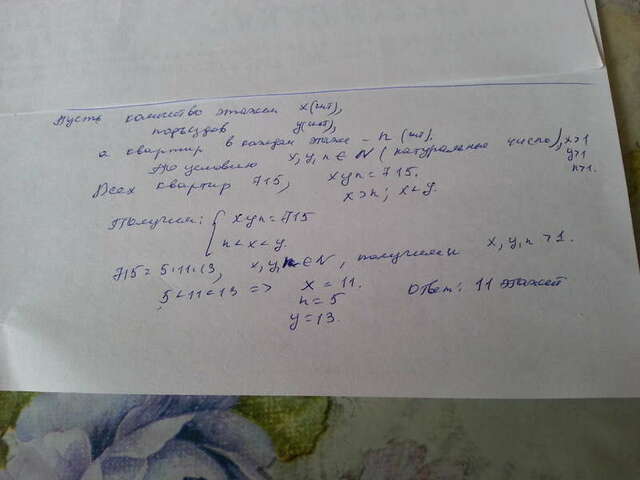 Пусть количество этажей x(шт),
подъездов y(шт),
а квартир в каждом этаже - n (шт),
По условию x, y, n ∈ N (натуральные числа), x>1
y>1
n>1.
Всех квартир 715, xyn = 715.
x>n; x<y.
Получим: { xyn = 715
n < x < y.
715 = 5·11·13, x, y, n ∈ N, получим x, y, n >1.
5 < 11 < 13 => x = 11.
n = 5
y = 13.
Ответ: 11 этажей